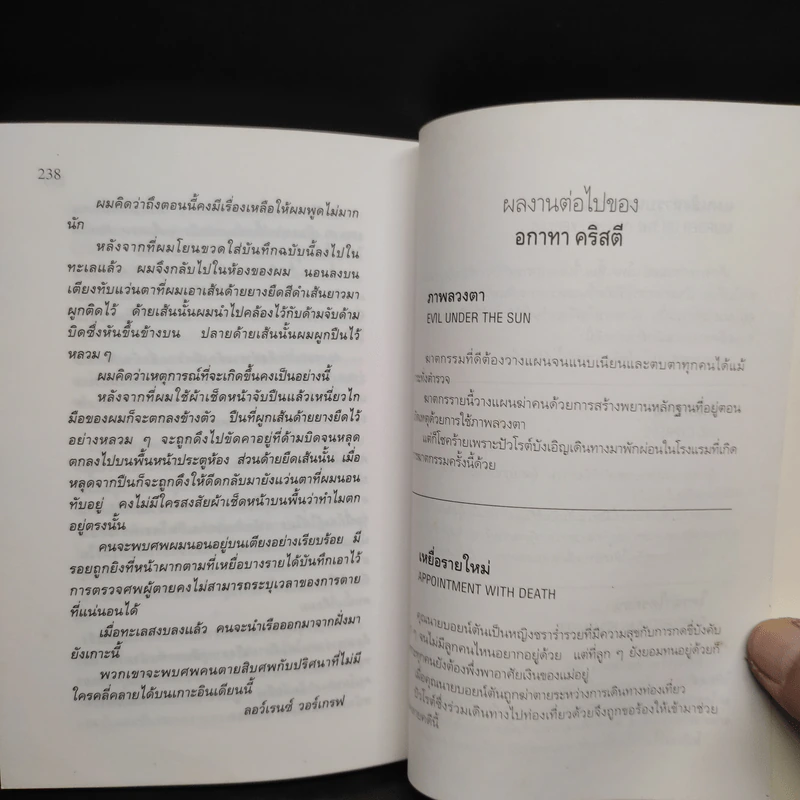 238
ผมคิดว่าถึงตอนนี้คงมีเรื่องเหลือให้ผมพูดไม่มาก
นัก
หลังจากที่ผมโยนขวดใส่บันทึกฉบับนี้ลงไปใน
ทะเลแล้ว ผมจึงกลับไปในห้องของผม นอนลงบน
เตียงทับแว่นตาที่ผมเอาเส้นด้ายยางยืดสีดำเส้นยาวมา
ผูกติดไว้ ด้ายเส้นนั้นผมนำไปคล้องไว้กับด้ามจับด้าม
บิดซึ่งหันขึ้นข้างบน ปลายด้ายเส้นนั้นผมผูกปืนไว้
หลวม ๆ
ผมคิดว่าเหตุการณ์ที่จะเกิดขึ้นคงเป็นอย่างนี้
หลังจากที่ผมใช้ผ้าเช็ดหน้าจับปืนแล้วเหนี่ยวไก
มือของผมก็จะตกลงข้างตัว ปืนที่ผูกเส้นด้ายยางยืดไว้
อย่างหลวม ๆ จะถูกดึงไปขัดคาอยู่ที่ด้ามบิดจนหลุด
ตกลงไปบนพื้นหน้าประตูห้อง ส่วนด้ายยืดเส้นนั้น เมื่อ
หลุดจากปืนก็จะถูกดึงให้ดีดกลับมายังแว่นตาที่ผมนอน
ทับอยู่ คงไม่มีใครสงสัยผ้าเช็ดหน้าบนพื้นว่าทำไมตก
อยู่ตรงนั้น
คนจะพบศพผมนอนอยู่บนเตียงอย่างเรียบร้อย มี
รอยถูกยิงที่หน้าผากตามที่เหยื่อบางรายได้บันทึกเอาไว้
การตรวจศพผู้ตายคงไม่สามารถระบุเวลาของการตาย
ที่แน่นอนได้
เมื่อทะเลสงบลงแล้ว คนจะนำเรือออกมาจากฝั่งมา
ยังเกาะนี้
พวกเขาจะพบศพคนตายสิบศพกับปริศนาที่ไม่มี
ใครคลี่คลายได้บนเกาะอินเดียนนี้
ลอว์เรนซ์ วอร์เกรฟ
ผลงานต่อไปของ
อกาทา คริสตี
ภาพลวงตา
EVIL UNDER THE SUN
ฆาตกรรมที่ดีต้องวางแผนจนแนบเนียนและตบตาทุกคนได้แม้
กระทั่งตำรวจ
ฆาตกรรายนี้วางแผนฆ่าคนด้วยการสร้างพยานหลักฐานที่อยู่ตอน
เกิดเหตุด้วยการใช้ภาพลวงตา
แต่ก็โชคร้ายเพราะปัวโรต์บังเอิญเดินทางมาพักผ่อนในโรงแรมที่เกิด
ฆาตกรรมครั้งนี้ด้วย
เหยื่อรายใหม่
APPOINTMENT WITH DEATH
คุณนายบอยน์ตันเป็นหญิงชราร่ำรวยที่มีความสุขกับการกดขี่บังคับ
ๆ จนไม่มีลูกคนไหนอยากอยู่ด้วย แต่ที่ลูก ๆ ยังยอมทนอยู่ด้วยก็
ทุกคนยังต้องพึ่งพาอาศัยเงินของแม่อยู่
เมื่อคุณนายบอยน์ตันถูกฆ่าตายระหว่างการเดินทางท่องเที่ยว
ปัวโรต์ซึ่งร่วมเดินทางไปท่องเที่ยวด้วยจึงถูกขอร้องให้เข้ามาช่วย
คดีนี้